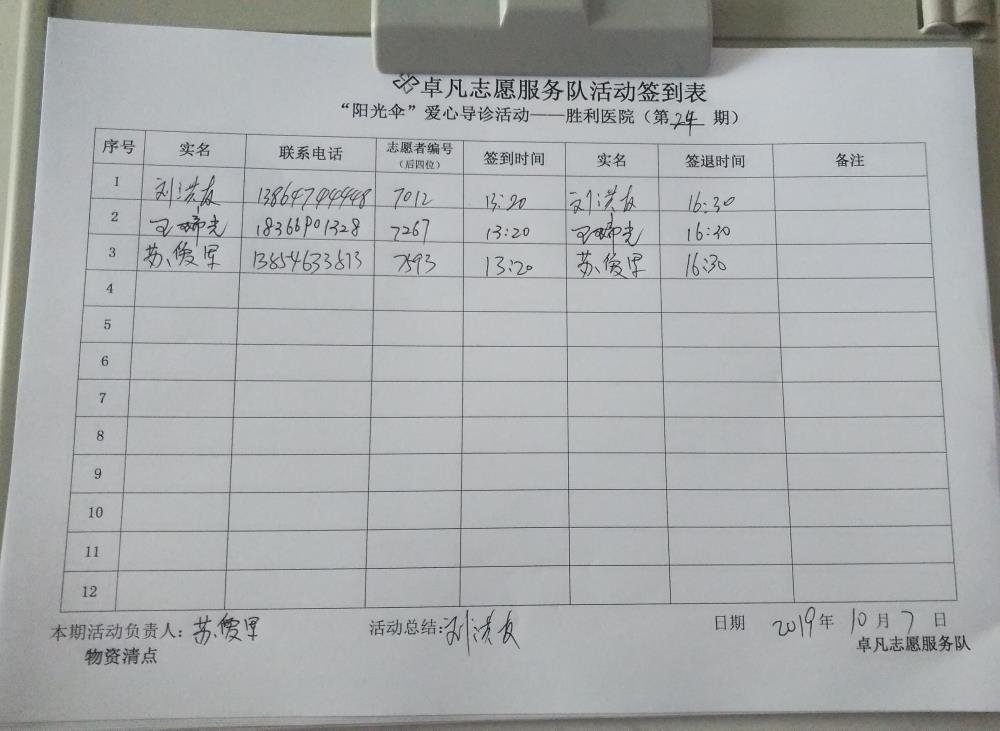 卓凡志愿服务队活动签到表
“阳光伞”爱心导诊活动——胜利医院（第24期）
序号 实名 联系电话 志愿者编号（后四位） 签到时间 实名 签退时间 备注
1 刘洪友 13864744448 7012 13:20 刘洪友 16:30
2 王 光 18366901328 7267 13:20 王 光 16:30
3 苏俊军 13854633813 7593 13:20 苏俊军 16:30
4
5
6
7
8
9
10
11
12
本期活动负责人：苏俊军 活动总结：刘洪友 日期 2019年10月7日
物资清点 卓凡志愿服务队